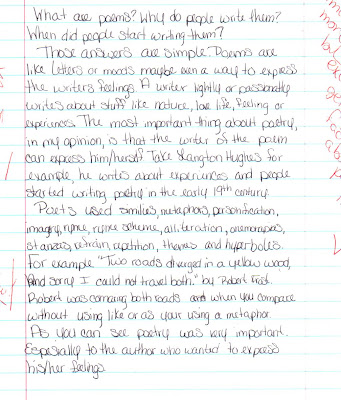 What are poems? Why do people write them?
When did people start writing them?
Those answers are simple. Poems are
like letters or moods maybe even a way to express
the writers feelings. A writer lightly or passionatly
writes about stuff like nature, love, life, feeling or
experiences. The most important thing about poetry,
in my opinion, is that the writer of the poem
can express him/herself. Take Langton Hughes for
example, he writes about experiences and people
started writing poetry in the early 19th century.
Poets used similies, metaphors, personification,
imagry, ryme, ryme scheme, alliteration, onamonapoeia,
stanzas, refrain, repitition, themes and hyperboles.
For example "Two roads diverged in a yellow wood,
And sorry I could not travel both." by Robert Frost.
Robert was comparing both roads and when you compare
without using like or as your using a metaphor.
As you can see poetry was very important.
Especially to the author who wanted to express
his/her feelings.